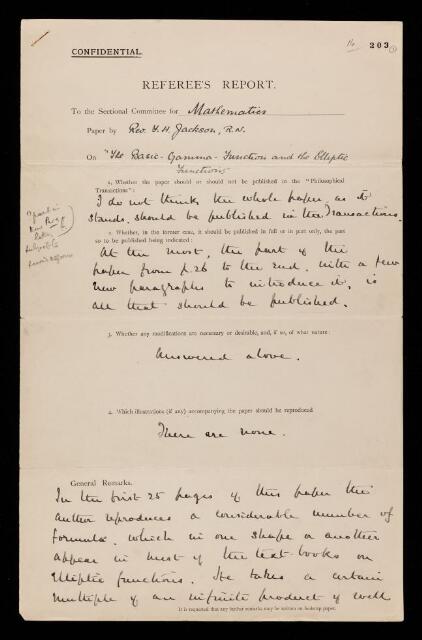 203
CONFIDENTIAL.
REFEREE'S REPORT.
To the Sectional Committee for Mathematics
Paper by Rev. F. H. Jackson, R.N.
On "The Basic-Gamma-Function and the Elliptic
Functions"
1. Whether the paper should or should not be published in the "Philosophical
Transactions":
I do not think the whole paper, as it
stands, should be published in the Transactions.
2. Whether, in the former case, it should be published in full or in part only, the part
so to be published being indicated:
At the most, the part of the
paper from p. 26 to the end, with a few
new paragraphs to introduce it, is
all that should be published.
3. Whether any modifications are necessary or desirable, and, if so, of what nature:
Answered above.
4. Which illustrations (if any) accompanying the paper should be reproduced
There are none.
General Remarks.
In the first 25 pages of this paper the
author reproduces a considerable number of
formulæ, which in one shape or another
appear in most of the text-books on
Elliptic functions. He takes a certain
multiple of an infinite product of well
It is requested that any further remarks may be written on foolscap paper.